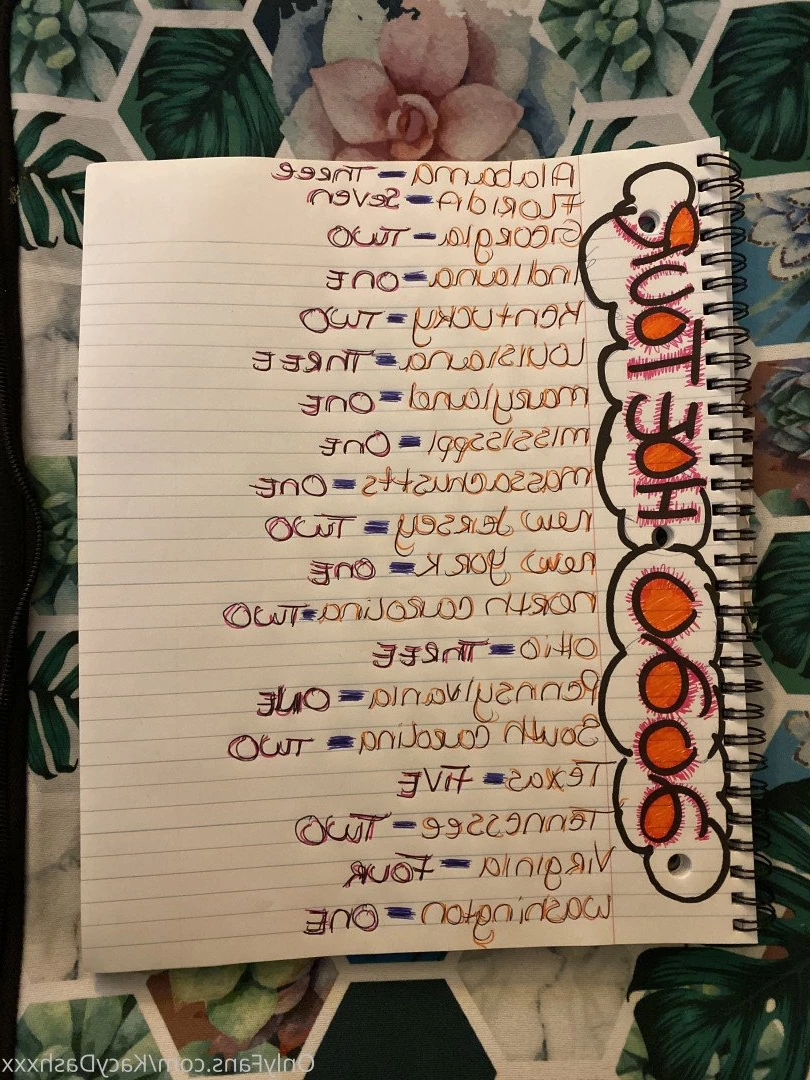 HOE TOUR
Alabama - Three
FloRidA - Seven
Georgia - TWO
Indiana - One
Kentucky = TWO
Louisiana = ThReE
maryland = One
mississppi = One
massachustts = One
new Jersey = TWO
new yoRK = One
noRth carolina = TWO
OHiO = ThREE
Pennsylvania = ONE
South carolina = TWO
Texas = FiVE
Tennessee - TWO
ViRginia - FouR
washington - ONE
OnlyFans.com/KacyDashxxx